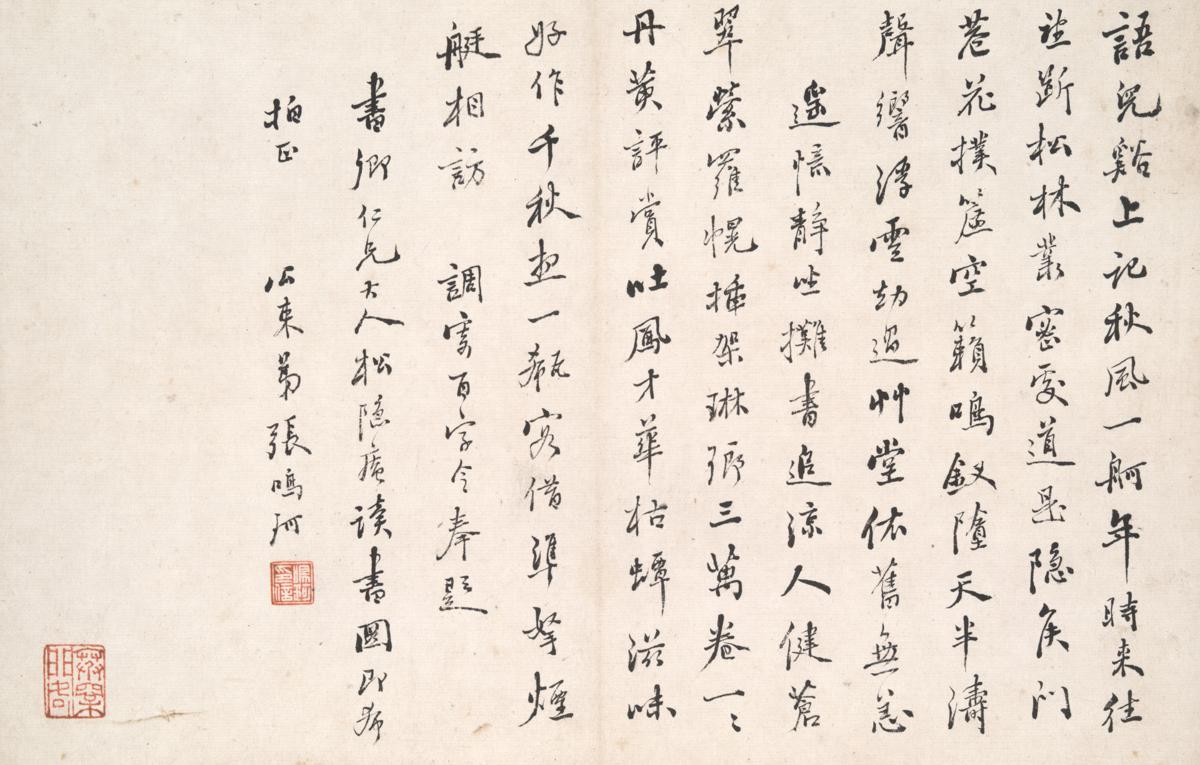 語兒谿上記秋風一舸年時来往
望斷松林叢密處道是隐矦門
巷花撲簾空籟鳴釵墮天半濤
聲響浮雲劫過艸堂依舊無恙
遥憶静坐攤書追涼人健蒼
翠縈羅幌插架琳琅三萬卷一〻
丹黄評賞吐鳳才華枯蟫滋味
好作千秋想一瓻容借準拏煙
艇相訪 調寄百字令奉題
書卿仁兄大人松隐庵读書圖即希
拍正 公束弟張鳴珂
鳴珂印信